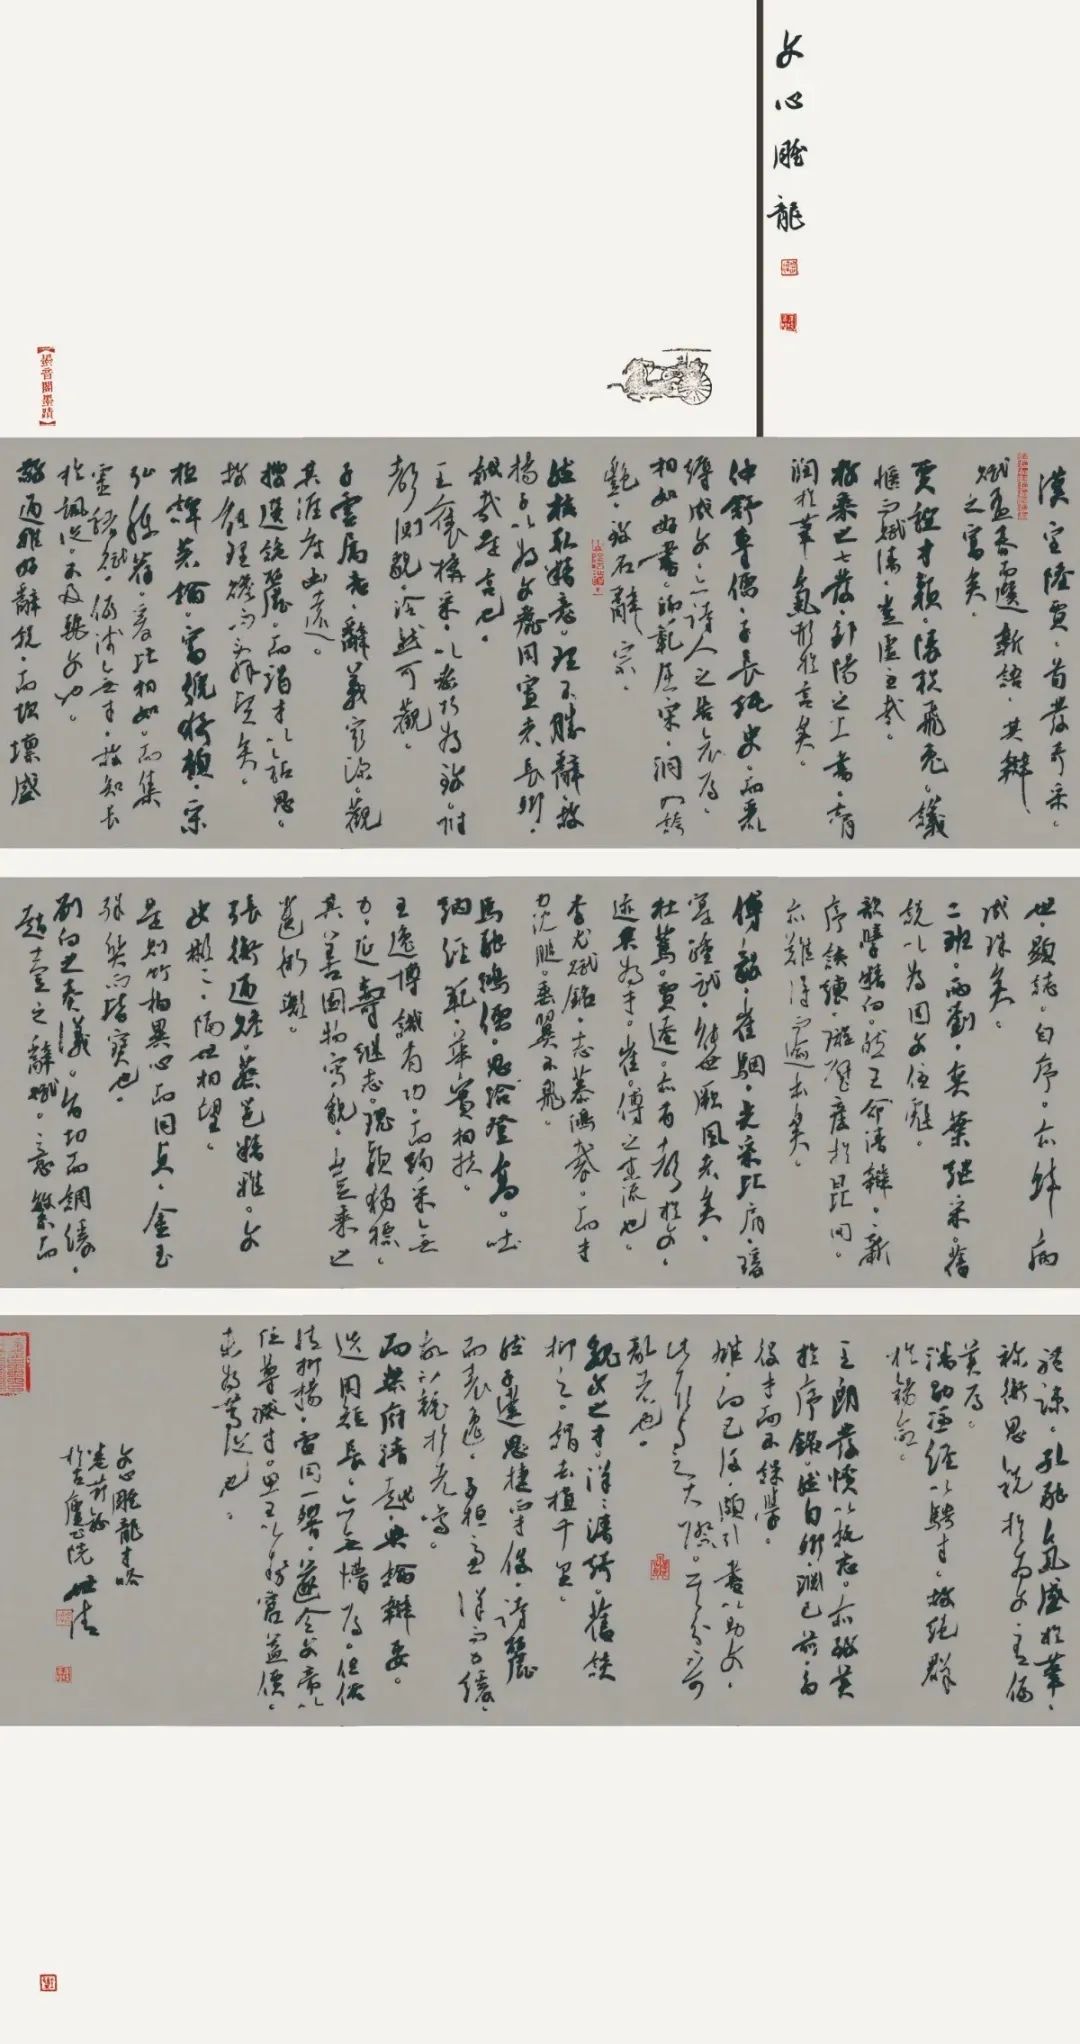 文心雕龍
墨音閣墨蹟
漢室陸賈。首發奇采。
賦孟春而選新語。其辯
之富矣。
賈誼才穎。陵軼飛兔。議
愜而賦清。豈虛至哉。
枚乘之七發。鄒陽之上書。膏
潤於筆。氣形於言矣。
仲舒專儒。子長純史。而麗
縟成文。亦詩人之告哀焉。
相如好書。師範屈宋。洞入誇
艷。致名辭宗。
然核取精意。理不勝辭。故
揚子以為文麗用寡者長卿。
誠哉是言也。
王褒構采。以密巧為致。附
聲測貌。泠然可觀。
子雲屬意。辭義最深。觀
其涯度幽遠。
搜選詭麗。而竭才以鉆思。
故能理贍而辭堅矣。
桓譚著論。富號猗頓。宋
弘稱薦。爰比相如。而集
靈諸賦。偏淺無才。故知長
於諷論。不及麗文也。
敬通雅好辭說。而坎壈盛
世。顯志自序。亦蚌病
成珠矣。
二班兩劉。奕葉繼采。舊
說以為固文優彪。
歆學精向。然王命清辯。新
序該練。璿璧產於昆岡。
亦難得而逾本矣。
傅毅崔駰。光采比肩。瑗
寔踵武。能世厥風者矣。
杜篤賈逵。亦有聲於文。
跡其為才。崔傅之末流也。
李尤賦銘。志慕鴻裁。而才
力沈膇。垂翼不飛。
馬融鴻儒。思洽登高。吐
納經範。華實相扶。
王逸博識有功。而絢采無
力。延壽繼志。瑰穎獨標。
其善圖物寫貌。豈枚乘之
遺術歟。
張衡通贍。蔡邕精雅。文
史彬彬。隔世相望。
是則竹柏異心而同貞。金玉
殊質而皆寶也。
劉向之奏議。旨切而調緩。
趙壹之辭賦。意繁而
體疏。孔融氣盛於筆。
禰衡思銳於為文。有偏
美焉。
潘勖憑經以騁才。故絕群
於錫命。
王朗發憤以托志。亦致美
於序銘。然自卿淵已前。多
役才而不課學。
雄向已後。頗引書以助文。
此取與之大際。其分不可
亂者也。
魏文之才。洋洋清綺。舊談
抑之。謂去植千里。
然子建思捷而才俊。詩麗
而表逸。子桓慮詳而力緩。
故不競於先鳴。
而樂府清越。典論辯要。
迭用短長。亦無懵焉。但俗
情抑揚。雷同一響。遂令文帝以
位尊減才。思王以勢窘益價。
未為篤論也。
文心雕龍才略